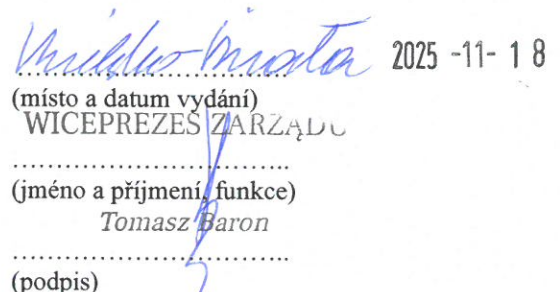 Bielsko-Biała 2025 -11- 18
(místo a datum vydání)
WICEPREZES ZARZĄDU
(jméno a příjmení, funkce)
Tomasz Baron
(podpis)